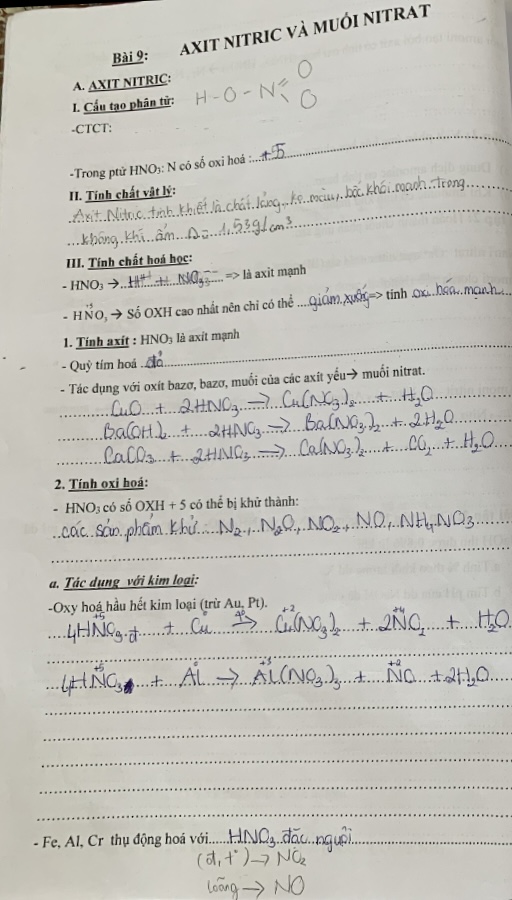 Bài 9: AXIT NITRIC VÀ MUỐI NITRAT
A. AXIT NITRIC:
I. Cấu tạo phân tử:
H-O-N
O
O
-CTCT:
-Trong ptử HNO₃: N có số oxi hoá :...+5
II. Tính chất vật lý:
Axit Nitric tinh khiết là chất lỏng, ko màu, bốc khói mạnh trong
không khí ẩm D = 1,53g/cm³
III. Tính chất hoá học:
- HNO₃ → H⁺ + NO₃⁻ => là axit mạnh
- HNO₃ → Số OXH cao nhất nên chỉ có thể ...giảm xuống=> tính oxi hóa mạnh
+5
1. Tính axít : HNO₃ là axít mạnh
- Quỳ tím hoá đỏ
- Tác dụng với oxít bazơ, bazơ, muối của các axít yếu→ muối nitrat.
CuO + 2HNO₃ → Cu(NO₃)₂ + H₂O
Ba(OH)₂ + 2HNO₃ → Ba(NO₃)₂ + 2H₂O
CaCO₃ + 2HNO₃ → Ca(NO₃)₂ + CO₂ + H₂O
2. Tính oxi hoá:
- HNO₃ có số OXH + 5 có thể bị khử thành:
các sản phẩm khử: N₂, N₂O, NO₂, NO, NH₄NO₃
a. Tác dụng với kim loại:
-Oxy hoá hầu hết kim loại (trừ Au, Pt).
+5 0 t° +2 +4
4HNO₃ đ + Cu → Cu(NO₃)₂ + 2NO₂ + H₂O
+5 0 +3 +2
4HNO₃ + Al → Al(NO₃)₃ + NO + 2H₂O
- Fe, Al, Cr thụ động hoá với HNO₃ đặc nguội
(đ, t°) → NO₂
loãng → NO